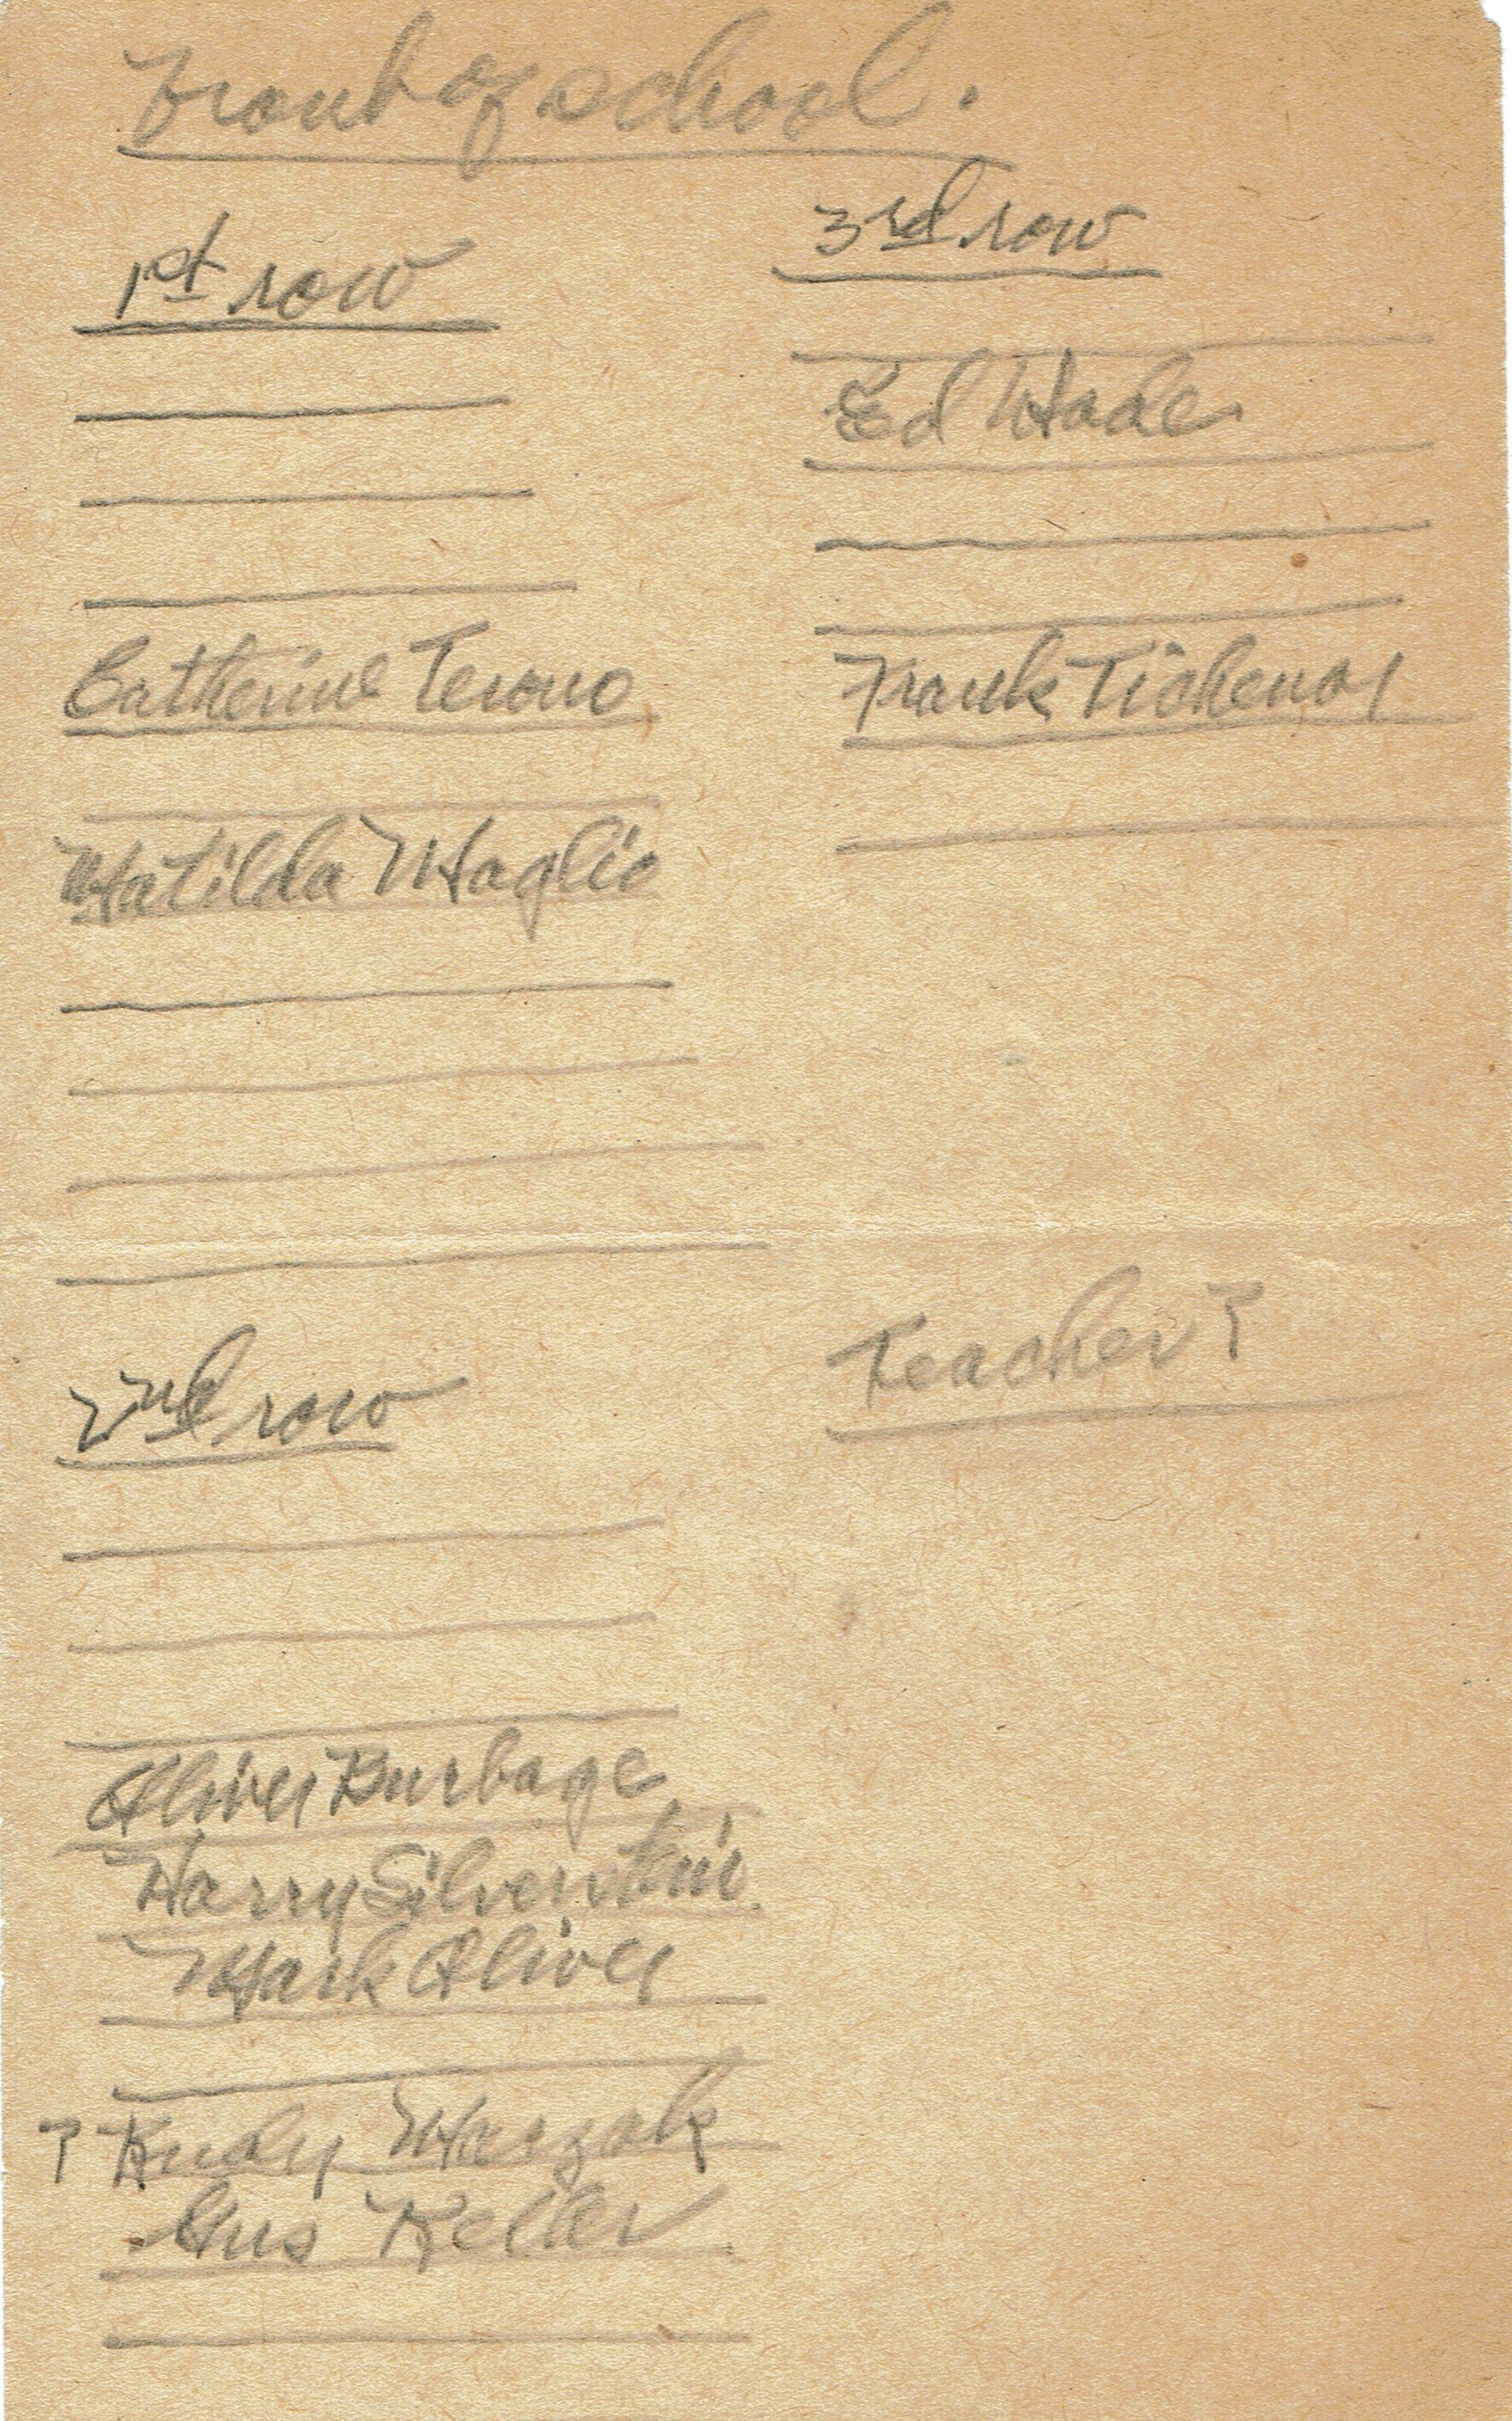 Front of school.
1st row
Catherine Tesono
Matilda Maglio
2nd row
Oliver Burbage
Harry Silverstein
Mark Oliver
? Rudy Marzok
Gus Keller
3rd row
Ed Wade
Frank Tichenor
Teacher?